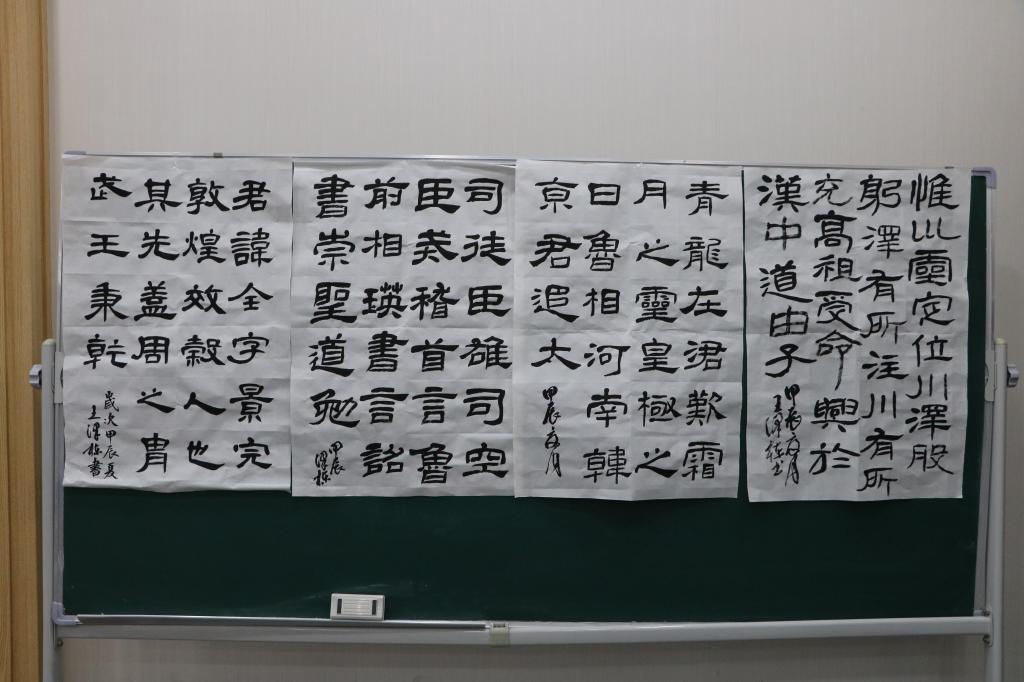 惟巛靈定位川澤股
躬澤有所注川有所
充高祖受命興於
漢中道由子
甲辰夏月
王澤書
青龍在涒歎霜
月之靈皇極之
日魯相河南韓
京君追大
甲辰夏月
司徒臣雄司空
臣戒稽首言魯
前相瑛書言詔
書崇聖道勉
甲辰
君諱全字景完
敦煌效穀人也
其先蓋周之胄
武王秉乾
歲次甲辰夏
王澤書